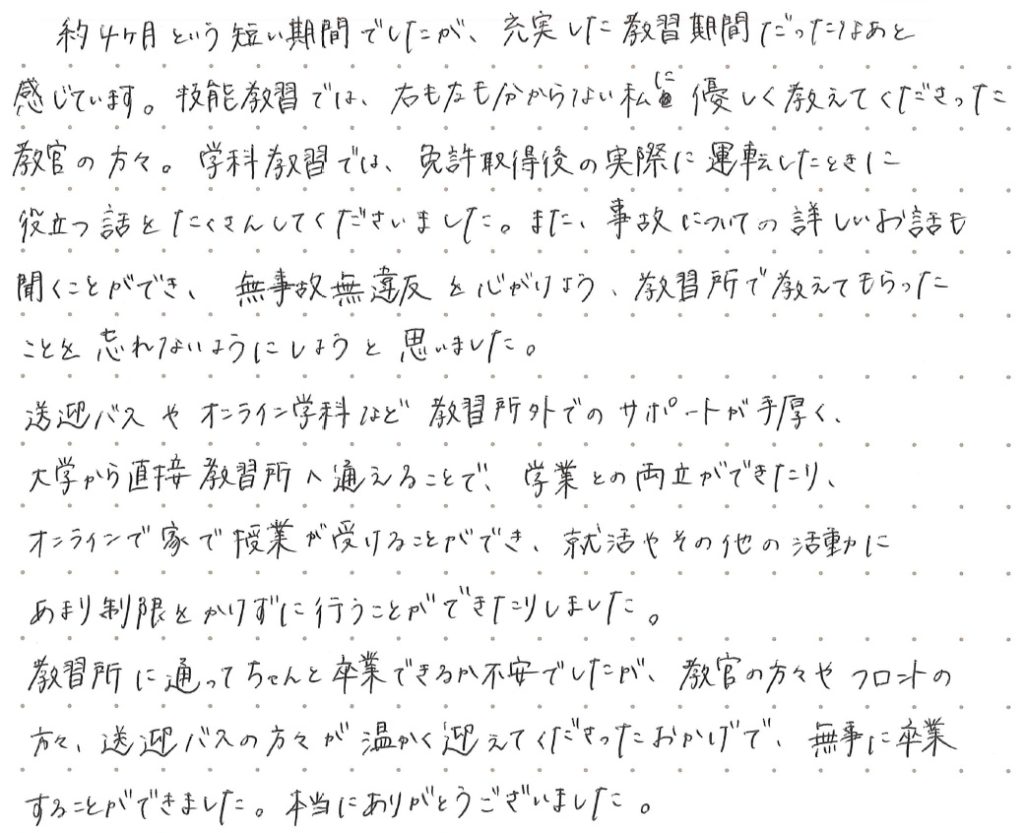 約4ヶ月という短い期間でしたが、充実した教習期間だったなあと
感じています。技能教習では、右も左も分からない私に優しく教えてくださった
教官の方々。学科教習では、免許取得後の実際に運転したときに
役立つ話をたくさんしてくださいました。また、事故についての詳しいお話も
聞くことができ、無事故無違反を心がけよう、教習所で教えてもらった
ことを忘れないようにしようと思いました。
送迎バスやオンライン学科など教習所外でのサポートが手厚く、
大学から直接教習所へ通えることで、学業との両立ができたり、
オンラインで家で授業が受けることができ、就活やその他の活動に
あまり制限をかけずに行うことができたりしました。
教習所に通ってちゃんと卒業できるか不安でしたが、教官の方々やフロントの
方々、送迎バスの方々が温かく迎えてくださったおかげで、無事に卒業
することができました。本当にありがとうございました。